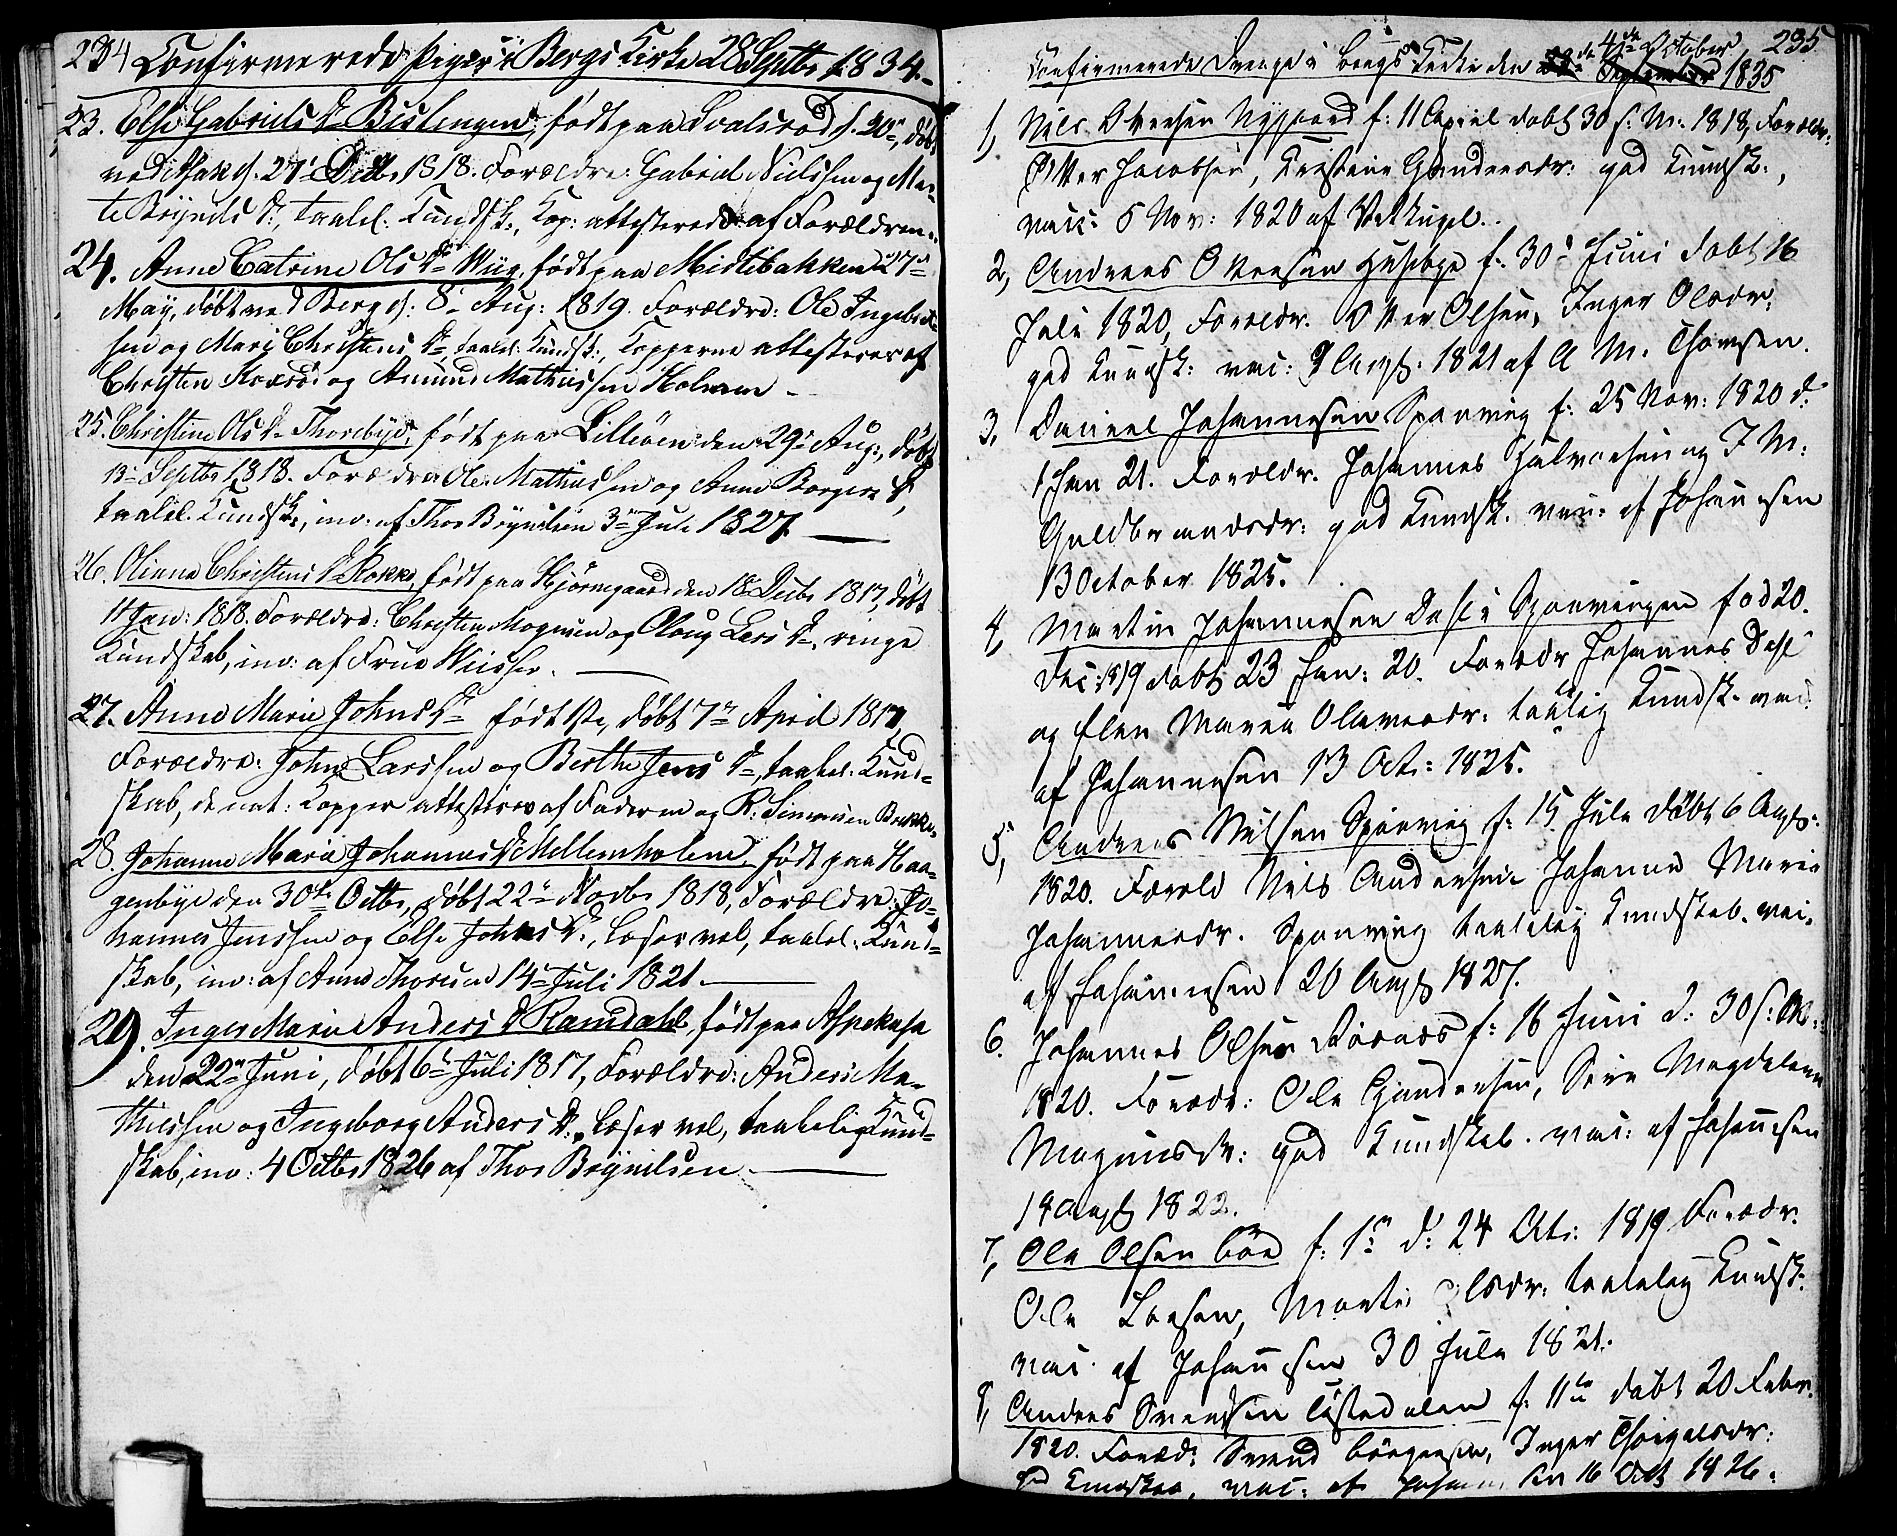 234 Confirmerede Piger i Bergs Kirke 28 Septbr 1834.
23. Else Gabriels D. Bislingen, født paa Svalerød d. 20de, døbt
ved d. 27de Decbr 1818. Forældre: Gabriel Nielssen og Mar-
te Brynils D., taalel. Kundsk., Kop: attesterede af Forældrene.
24. Anne Catrine Ols D. Wiig, født paa Mistebakken 27de
May, døbt ved Berg d. 8de Aug: 1819. Forældre: Ole Ingebret-
sen og Mari Christens D. taalel: Kundsk:, Kopperne attesteres af
Christen og Amund Mathiessen Holmen
25. Christine Ols D. Thorebye, født paa Lilleöen den 29de Aug:, døbt
13de Septbr 1818. Forældre Ole Mathiessen og Anne Borgers D,
taalel. Kundsk:, inv: af Thor Brynilsen 3de Juli 1827.
26. Oliana Christens D. Rokke, født paa Hjørnegaard den 18 Decbr 1817, døbt
11 Jan: 1818. Forældre: Christen Mogensen og Oloug Lars D., ringe
Kundskab, inv: af Frue Wiisher.
27. Anne Marie Johns D. født 1ste, døbt 7de April 1817,
Forældre: John Larssen og Berthe Jens D., taalel. Kund-
skab, de nat: Kopper attesteres af Faderen og R. Simensen Bakke.
28. Johanne Marie Johannes D. Mellemholen, født paa Haa-
genbye den 30te Octbr, døbt 22de Novbr 1818, Forældre: Jo-
hannes Jenssen og Else Johns D., læser vel, taalel. Kund-
skab, inv: af Anne Thorsen 14de Juli 1821.
29. Inger Marie Anders D. Ramdahl, født paa Aspekasa
den 22de Juni, døbt 6te Juli 1817, Forældre: Anders Ma-
thiessen og Ingeborg Anders D., læser vel, taalelig Kund-
skab, inv: 4 Octbr 1826 af Thor Brynilsen.
4de October 235
Confirmerede Drenge i Bergs Kirke den September 1835
1, Nils Ottersen Nygaard f: 11 April døbt 30 s. M. 1818, Forældr:
Otter Jacobsen, Kirstine Gundersdr: god Kundsk:,
vacc: 5 Nov: 1820 af Vetlugel.
2, Andreas Ottersen Husebye f: 30te Juni døbt 16
Juli 1820, Forældr. Otter Olsen, Inger Olsdr:
god Kundsk: vac: 9 Augst: 1821 af A M. Thomsen.
3, Daniel Johannesen Sponvig f: 25 Nov: 1820 d:
1 Jan 21. Forældr. Johannes Halvorsen og I M:
Guldbrandsdr: god Kundsk. vac: af Johannesen
13 October 1825.
4, Martin Johannesen Dahl i Sponvigen fød 20.
Dec: 1819 døbt 23 Jan: 20. Forældr Johannes Dahl
og Elen Maria Olavesdr: taalelig Kundsk. vac:
af Johannesen 13 Oct: 1825.
5, Andreas Nilsen Sponvig f: 15 Juli døbt 6 Augs:
1820. Foræld Nils Andersen Johanne Maria
Johannesdr. Sponvig taalelig Kundskab. vac:
af Johannesen 20 Augst 1827.
6. Johannes Olsen f: 16 Juni d: 30 s: M:
1820. Forædr: Ole Gundersen, Siri Magdalena
Magnusdr: god Kundskab. vac: af Johannesen
14 Augst 1822.
7, Ole Olsen Böe f: 1de d: 24 Oct: 1819 Forædr:
Ole Larsen, Marte Olsdr: taalelig Kundsk:
vac. af Johannesen 30 Juli 1821.
8, Anders Svendsen f. 11te døbt 20 Febr.
1820. Foræd: Svend Börgersen, Inger Thorgelsdr:
god Kundskab, vac: af Johannesen 16 Oct 1826.